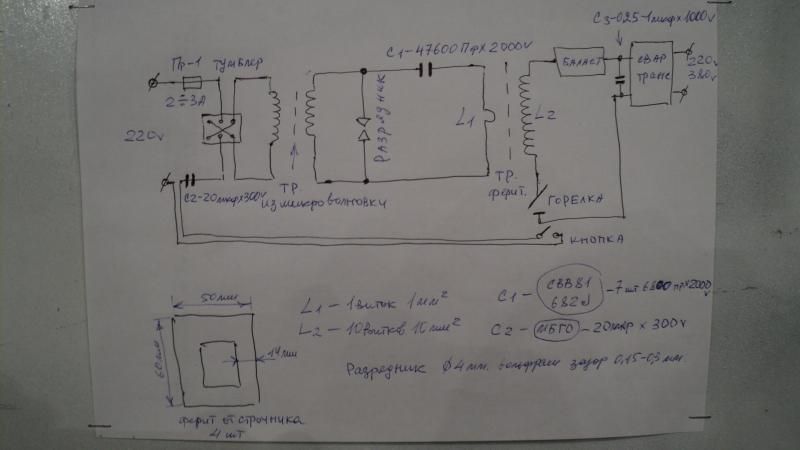 C3-025-1мкф x 1000v
Пр-1 тумблер
C1-47600 Пф x 2000v
2÷3А
220v
Разрядник
L1
L2
Баласт
свар
транс
220v
380v
C2-20мкф x 300v
ТР.
из микроволновки
ТР.
ферит.
горелка
кнопка
50мм
60мм
14мм
ферит от строчника
4 шт
L1 - 1 виток 1мм²
L2 - 10 витков 10мм²
C1 - СВВ81 - 7 шт 6800 пф x 2000v
682J
C2 - МБГО - 20мкф x 300v
Разредник ф 4 мм. вольфрам зазор 0,15-0,3 мм